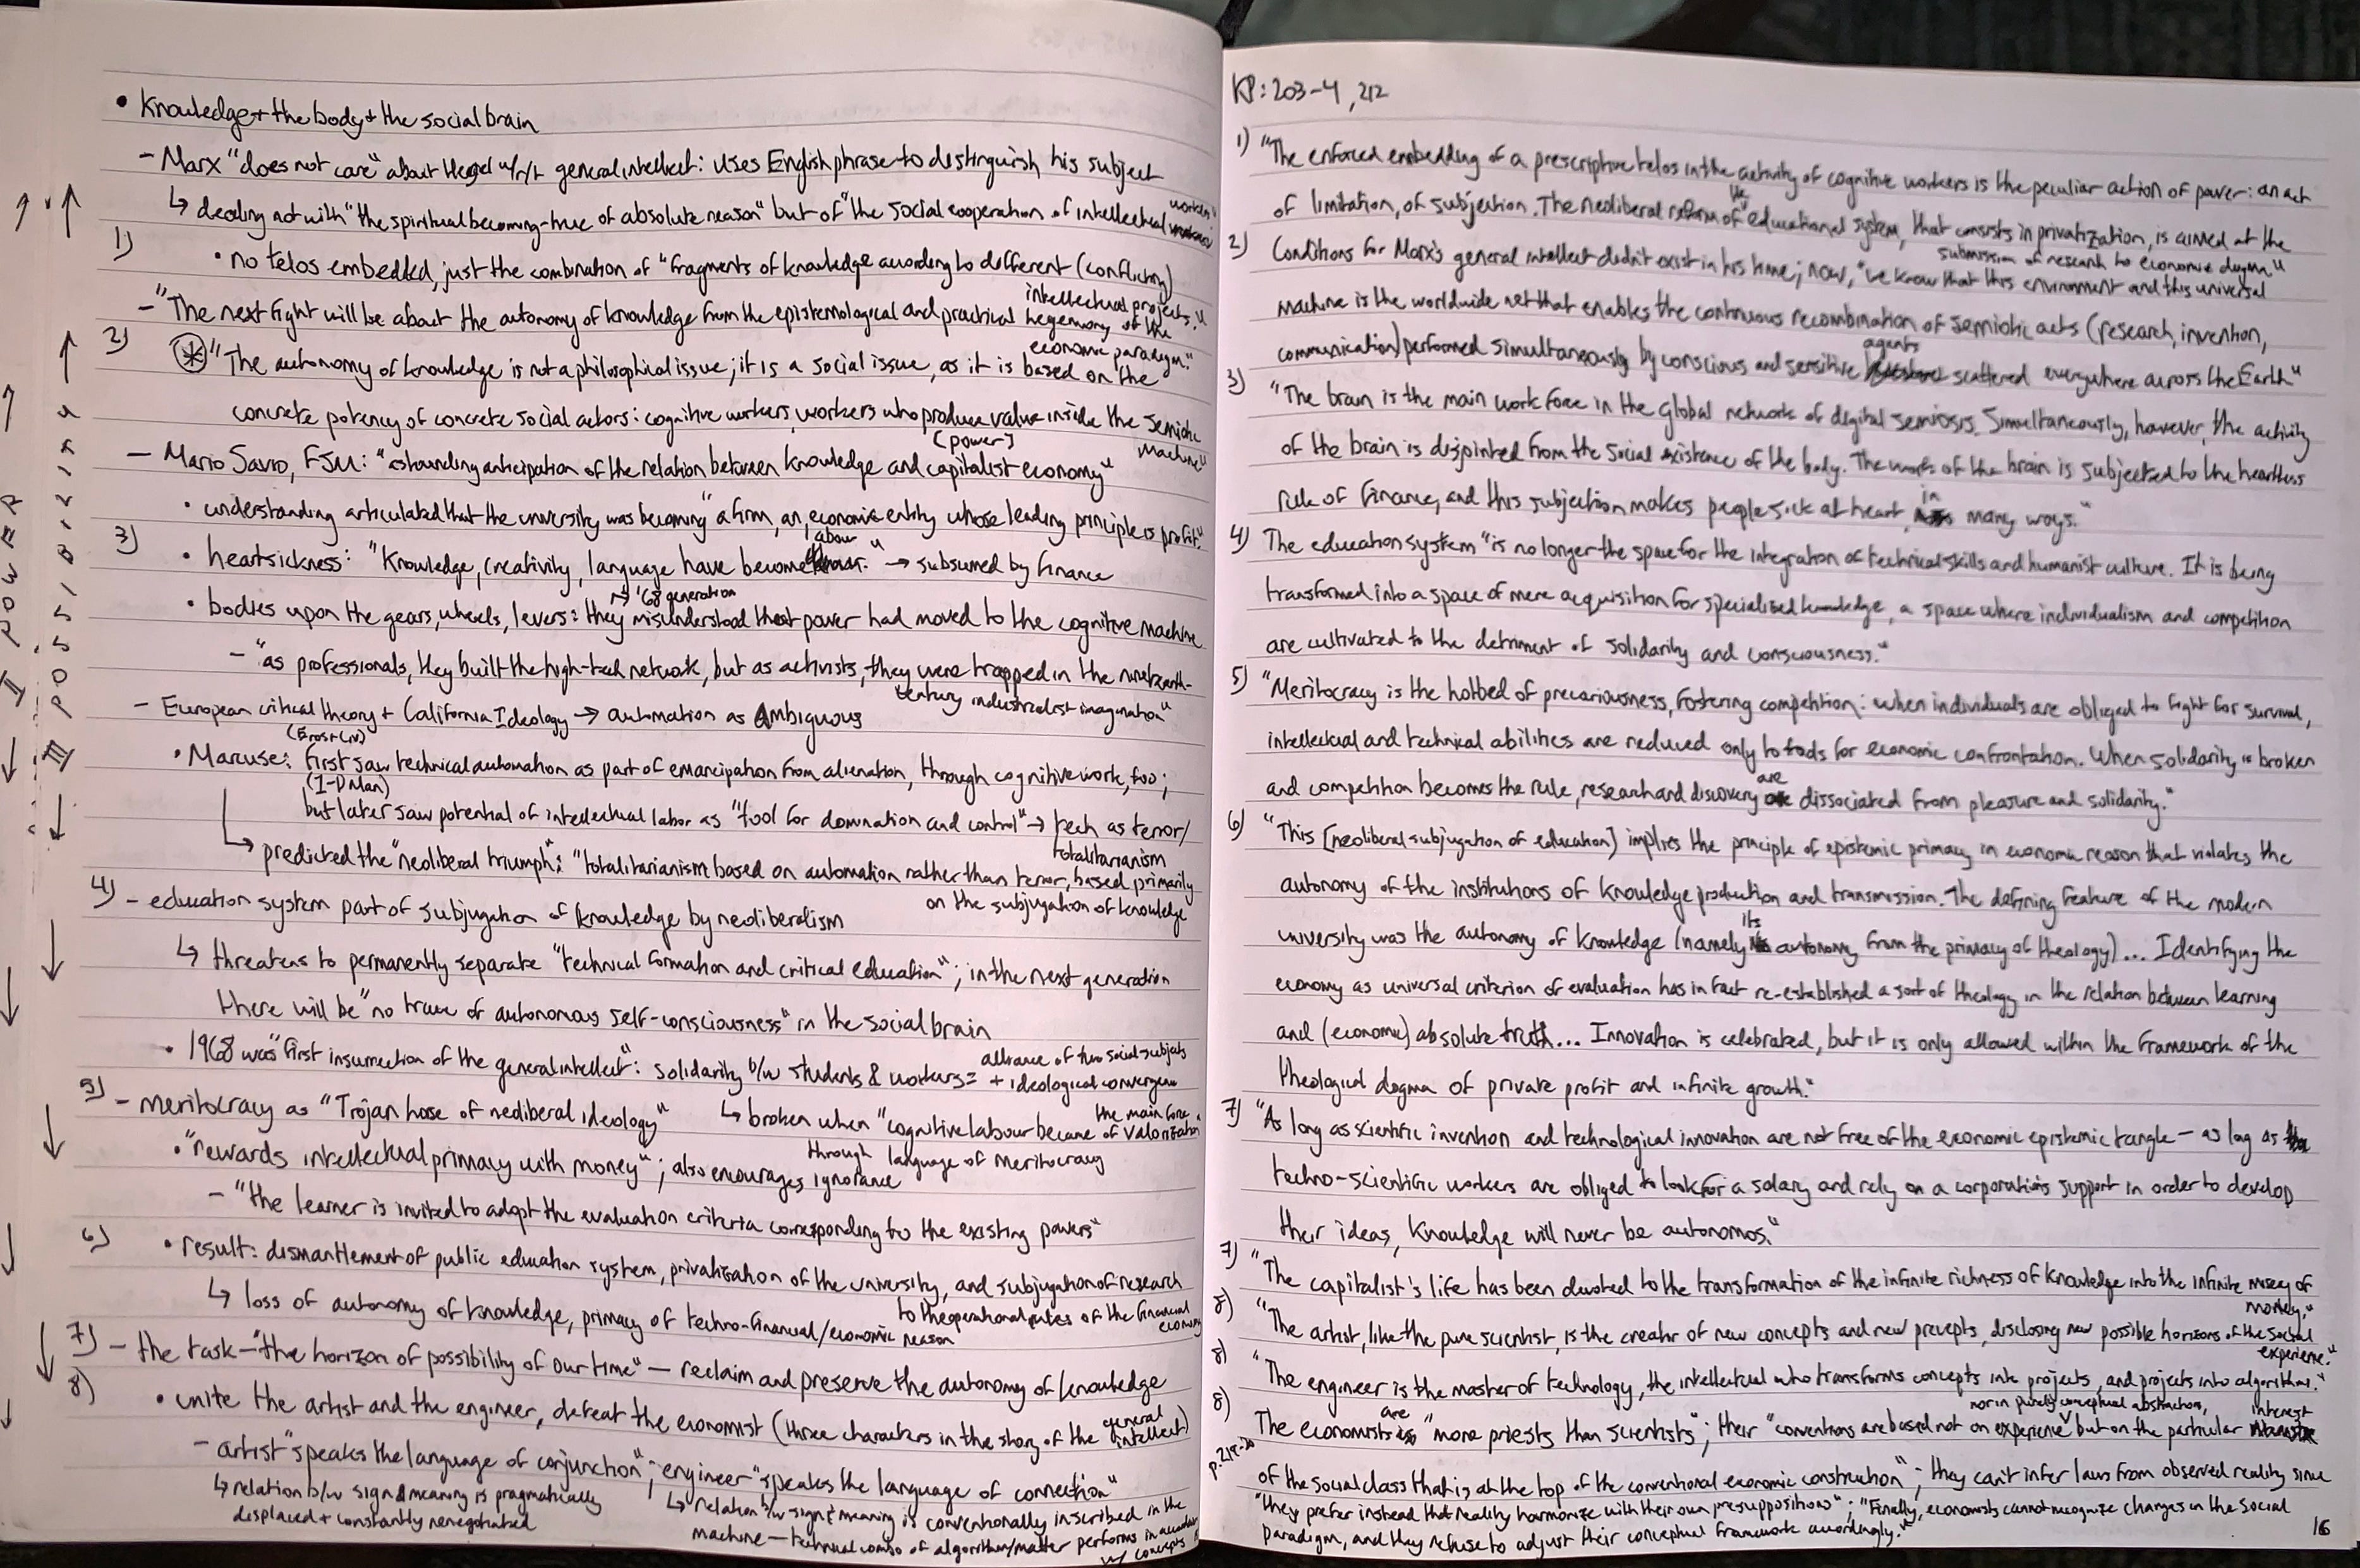 • Knowledge + the body + the social brain
– Marx "does not care" about Hegel w/r/t general intellect: uses English phrase to distinguish his subject
↳ dealing not with "the spiritual becoming-true of absolute reason" but of "the social cooperation of intellectual workers"
1) • no telos embedded, just the combination of "fragments of knowledge according to different (conflicting) intellectual projects."
– "The next fight will be about the autonomy of knowledge from the epistemological and practical hegemony of the economic paradigm."
2) * "The autonomy of knowledge is not a philosophical issue; it is a social issue, as it is based on the
concrete potency of concrete social actors: cognitive workers, workers who produce value inside the semiotic machine"
(power)
– Mario Savio, FSM: "astounding anticipation of the relation between knowledge and capitalist economy"
• understanding articulated that the university was becoming "a firm, an economic entity whose leading principle is profit."
3) • heartsickness: "Knowledge, creativity, language have become labour" → subsumed by finance
↱ '68 generation
• bodies upon the gears, wheels, levers: they misunderstood that power had moved to the cognitive machine
– "as professionals, they built the high-tech network, but as activists, they were trapped in the nineteenth-
century industrialist imagination"
– European critical theory + California Ideology → automation as Ambiguous
(Eros + Civ)
• Marcuse: first saw technical automation as part of emancipation from alienation, through cognitive work, too;
(1-D Man)
but later saw potential of intellectual labor as "tool for domination and control" → tech as terror/
totalitarianism
↳ predicted the "neoliberal triumph": "totalitarianism based on automation rather than terror, based primarily
on the subjugation of knowledge
4) – education system part of subjugation of knowledge by neoliberalism
↳ threatens to permanently separate "technical formation and critical education"; in the next generation
there will be "no trace of autonomous self-consciousness" in the social brain
• 1968 was "first insurrection of the general intellect": solidarity b/w students & workers = alliance of two social subjects
+ ideological convergence
5) – meritocracy as "Trojan horse of neoliberal ideology"
↳ broken when "cognitive labour became the main force of valorization
through language of meritocracy
• "rewards intellectual primacy with money"; also encourages ignorance
– "the learner is invited to adopt the evaluation criteria corresponding to the existing powers"
6) • result: dismantlement of public education system, privatization of the university, and subjugation of research
to the operational rules of the financial economy
↳ loss of autonomy of knowledge, primacy of techno-financial/economic reason
7) – the task – "the horizon of possibility of our time" — reclaim and preserve the autonomy of knowledge
8) • unite the artist and the engineer, defeat the economist (three characters in the story of the general intellect)
– artist "speaks the language of conjunction"; engineer "speaks the language of connection"
↳ relation b/w sign & meaning is pragmatically
displaced + constantly renegotiated
↳ relation b/w sign & meaning is conventionally inscribed in the
machine — technical combo of algorithm/matter performs in accordance
w/ concepts
↑ POWER ↓
II
↑ POSSIBILITY ↓
III
KP: 203-4, 212
1) "The enforced embedding of a prescriptive telos in the activity of cognitive workers is the peculiar action of power: an act
of limitation, of subjection. The neoliberal reform of the educational system, that consists in privatization, is aimed at the
submission of research to economic dogma"
2) Conditions for Marx's general intellect didn't exist in his time; now, "we know that this environment and this universal
machine is the worldwide net that enables the continuous recombination of semiotic acts (research, invention,
communication) performed simultaneously by conscious and sensitive agents scattered everywhere across the Earth"
3) "The brain is the main work force in the global network of digital semiosis. Simultaneously, however, the activity
of the brain is disjointed from the social existence of the body. The work of the brain is subjected to the heartless
rule of finance, and this subjection makes people sick at heart in many ways."
4) The education system "is no longer the space for the integration of technical skills and humanist culture. It is being
transformed into a space of mere acquisition for specialized knowledge, a space where individualism and competition
are cultivated to the detriment of solidarity and consciousness."
5) "Meritocracy is the hotbed of precariousness, fostering competition: when individuals are obliged to fight for survival,
intellectual and technical abilities are reduced only to tools for economic confrontation. When solidarity is broken
and competition becomes the rule, research and discovery are dissociated from pleasure and solidarity."
6) "This [neoliberal subjugation of education] implies the principle of epistemic primacy in economic reason that violates the
autonomy of the institutions of knowledge production and transmission. The defining feature of the modern
university was the autonomy of knowledge (namely its autonomy from the primacy of theology)... Identifying the
economy as universal criterion of evaluation has in fact re-established a sort of theology in the relation between learning
and (economic) absolute truth... Innovation is celebrated, but it is only allowed within the framework of the
theological dogma of private profit and infinite growth."
7) "As long as scientific invention and technological innovation are not free of the economic epistemic tangle — as long as
techno-scientific workers are obliged to look for a salary and rely on a corporation's support in order to develop
their ideas, knowledge will never be autonomos."
7) "The capitalist's life has been devoted to the transformation of the infinite richness of knowledge into the infinite misery of
money."
8) "The artist, like the pure scientist, is the creator of new concepts and new precepts, disclosing new possible horizons of the social
experience."
8) "The engineer is the master of technology, the intellectual who transforms concepts into projects, and projects into algorithms."
8) The economists are "more priests than scientists"; their "conventions are based not on experience nor in purely conceptual abstraction, but on the particular interest
p. 218-20
of the social class that is at the top of the conventional economic construction"; they can't infer laws from observed reality since
"they prefer instead that reality harmonize with their own presuppositions"; "Finally, economists cannot recognize changes in the social
paradigm, and they refuse to adjust their conceptual framework accordingly."
16